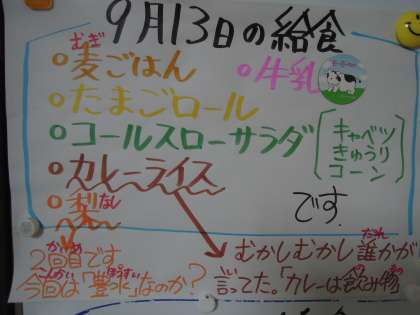 9月13日の給食
むぎ
○麦ごはん ○牛乳
○たまごロール
○コールスローサラダ[キャベツ きゅうり コーン]
○カレーライス
○梨なし
です。
かいめ
2回目です
こんかい ほうすい
今回は「豊水」なのか?
だれ
むかしむかし誰かが
い の もの
言ってた。「カレーは飲み物